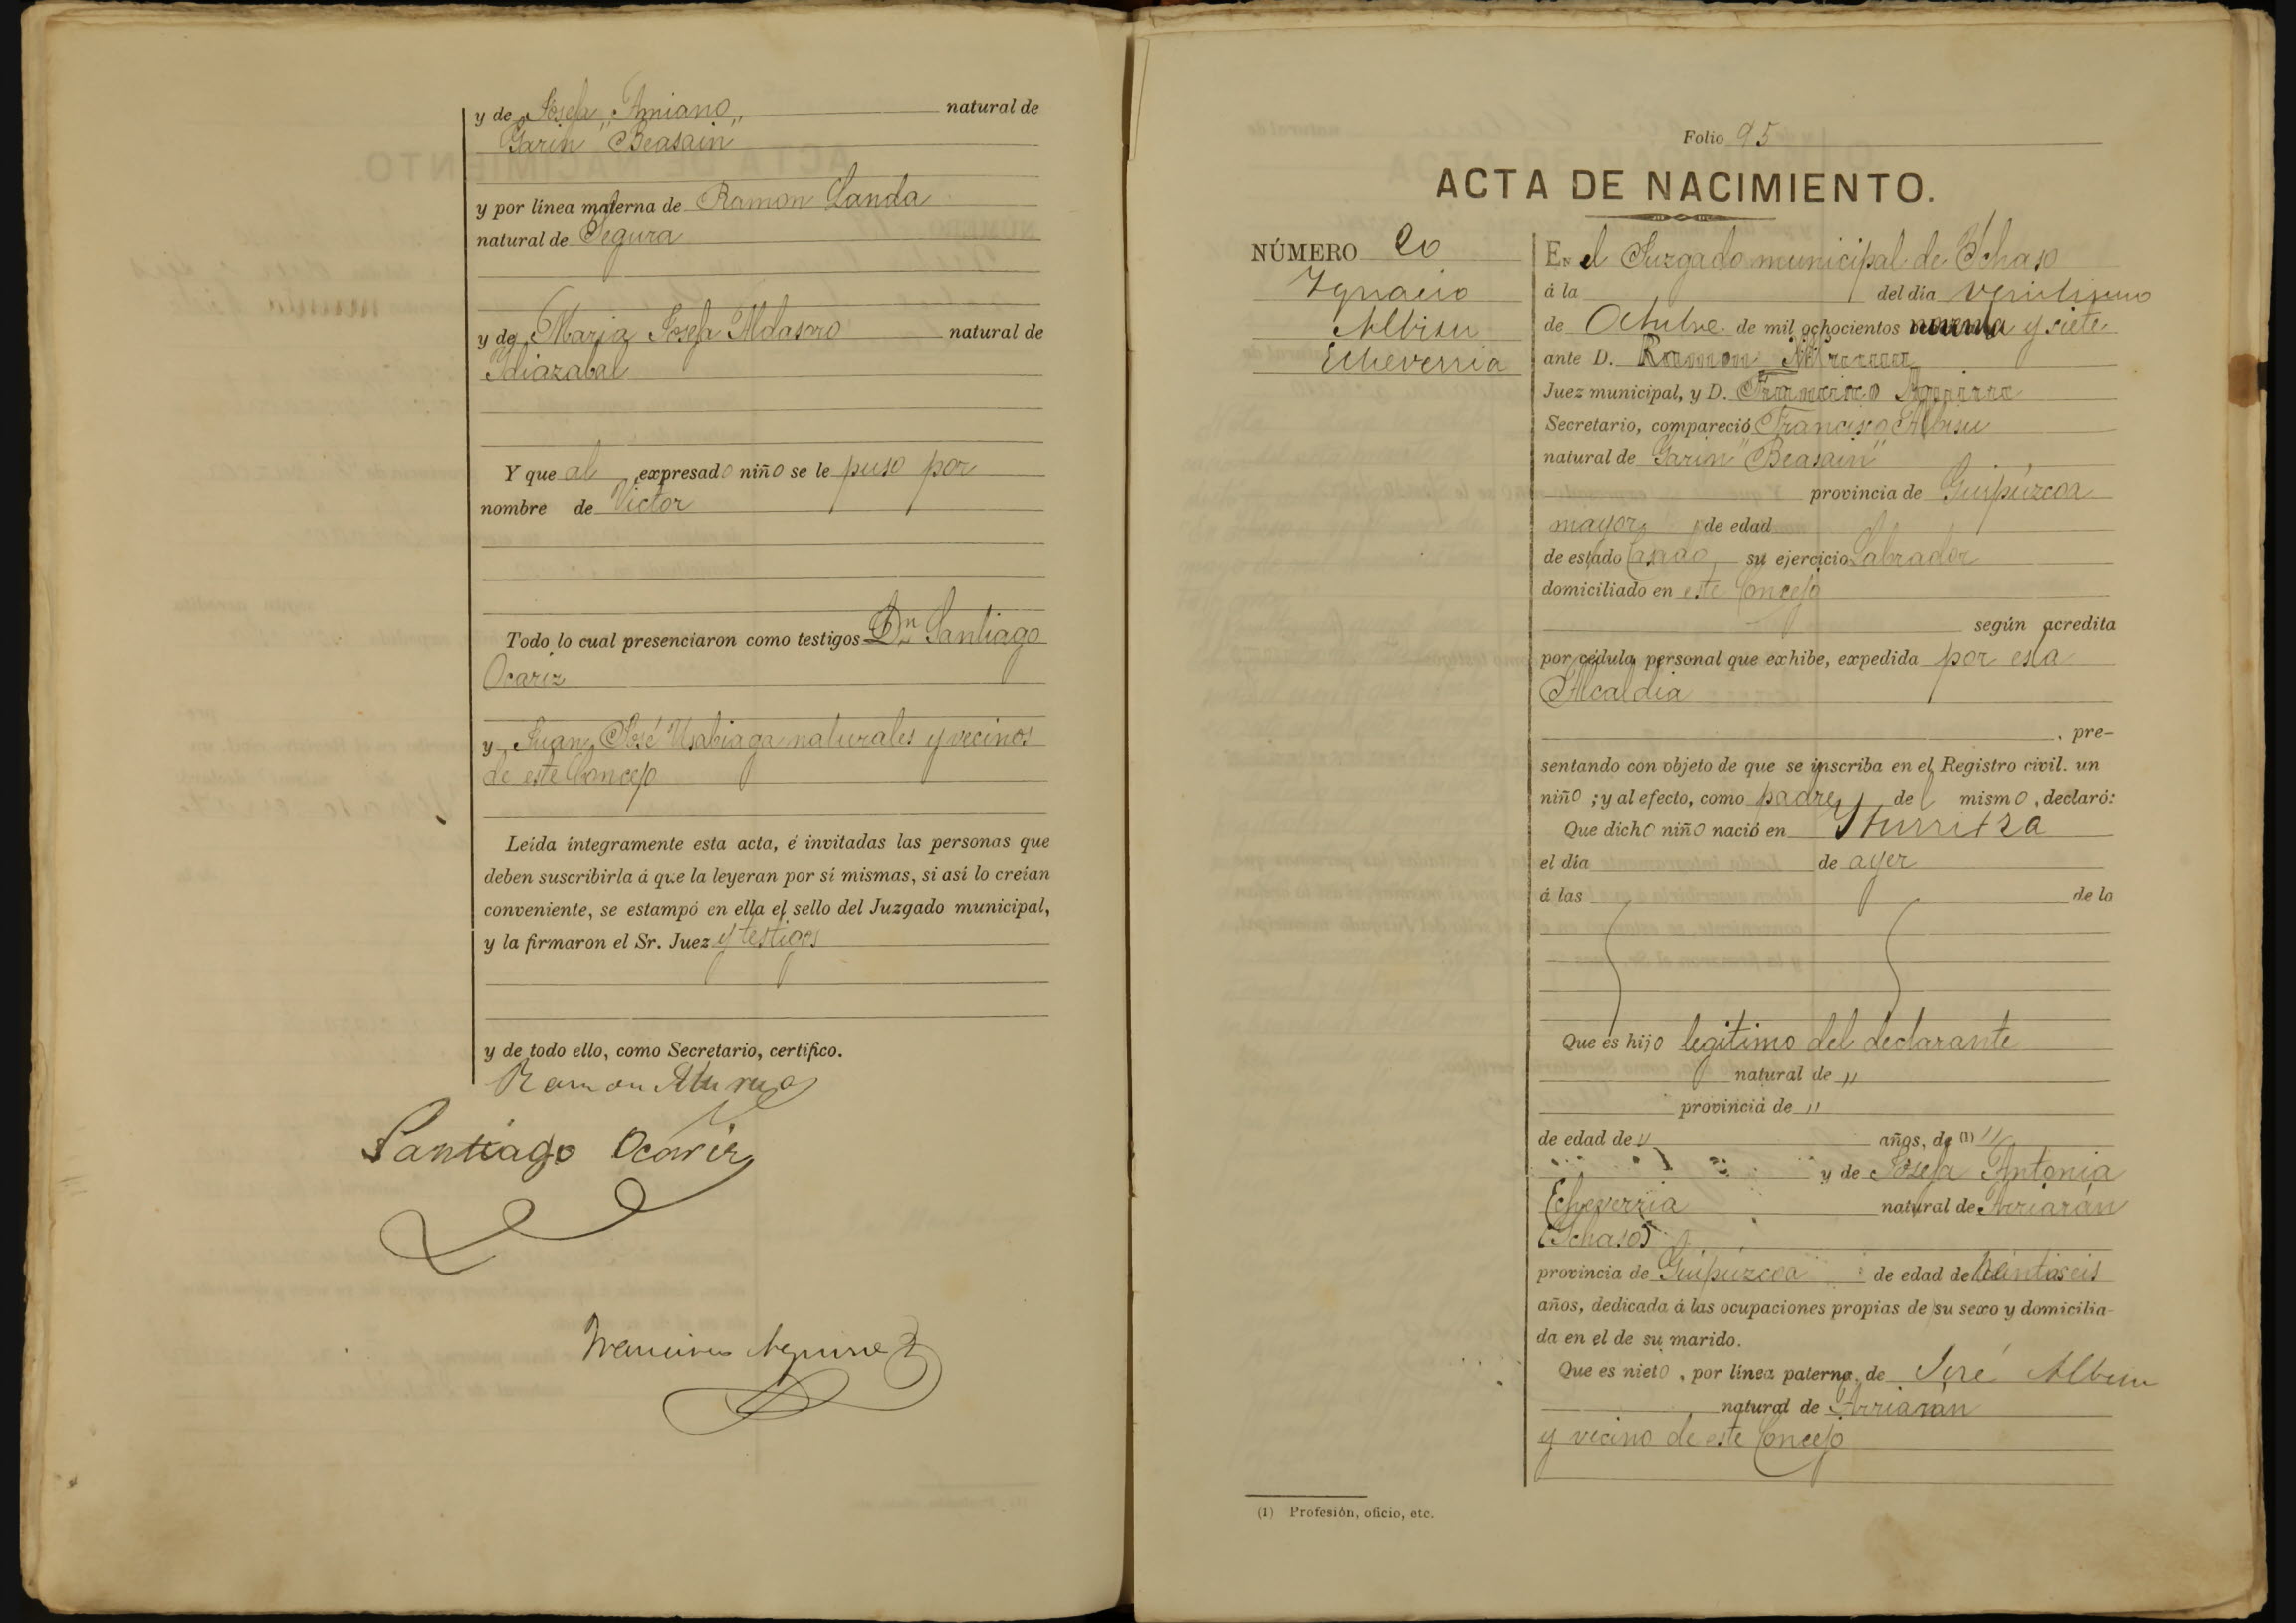 y de Josefa Amiano natural de
Garin "Beasain"
y por línea materna de Ramon Landa
natural de Segura
y de Maria Josefa Aldasoro natural de
Ydiazabal
Y que al expresado niño se le puso por
nombre de Victor
Todo lo cual presenciaron como testigos Dn Santiago
Ocariz
y Juan José Usabiaga naturales y vecinos
de este Concejo
Leída íntegramente esta acta, é invitadas las personas que
deben suscribirla á que la leyeran por sí mismas, si así lo creían
conveniente, se estampó en ella el sello del Juzgado municipal,
y la firmaron el Sr. Juez y testigos
y de todo ello, como Secretario, certifico.
Ramon
Santiago Ocariz
Francisco Aguirre
Folio 95
ACTA DE NACIMIENTO.
NÚMERO 20
Ygnacio
Albisu
Echeverria
En el Juzgado municipal de Echaso
á la del día veintiuno
de Octubre de mil ochocientos noventa y siete
ante D. Ramon
Juez municipal, y D. Francisco Aguirre
Secretario, compareció Francisco Albisu
natural de Garin "Beasain"
provincia de Guipúzcoa
mayor de edad
de estado Casado su ejercicio Labrador
domiciliado en este Concejo
según acredita
por cédula personal que exhibe, expedida por esta
Alcaldia
, pre-
sentando con objeto de que se inscriba en el Registro civil. un
niño ; y al efecto, como padre del mismo, declaró:
Que dicho niño nació en Yturritza
el día de ayer
á las de la
Que es hijo legitimo del declarante
natural de "
provincia de "
de edad de " años, de (1) "
y de Josefa Antonia
Echeverria natural de Arriarán
(Echaso)
provincia de Guipúzcoa de edad de
años, dedicada á las ocupaciones propias de su sexo y domicilia-
da en el de su marido.
Que es nieto, por línea paterna, de José Albisu
natural de Arriaran
y vecino de este Concejo
(1) Profesión, oficio, etc.